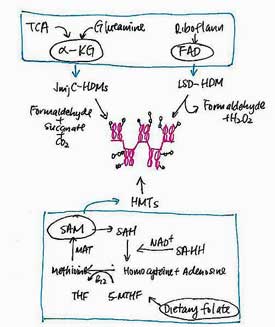 TCA Glutamine Riboflavin
α-KG FAD
JmjC-HDMs LSD-HDM
Formaldehyde
+
Succinate
+
CO2
Formaldehyde
+H2O2
HMTs
SAM SAH
MAT NAD+ SAHH
Methionine Homocysteine + Adenosine
B12
THF 5-MTHF Dietary folate